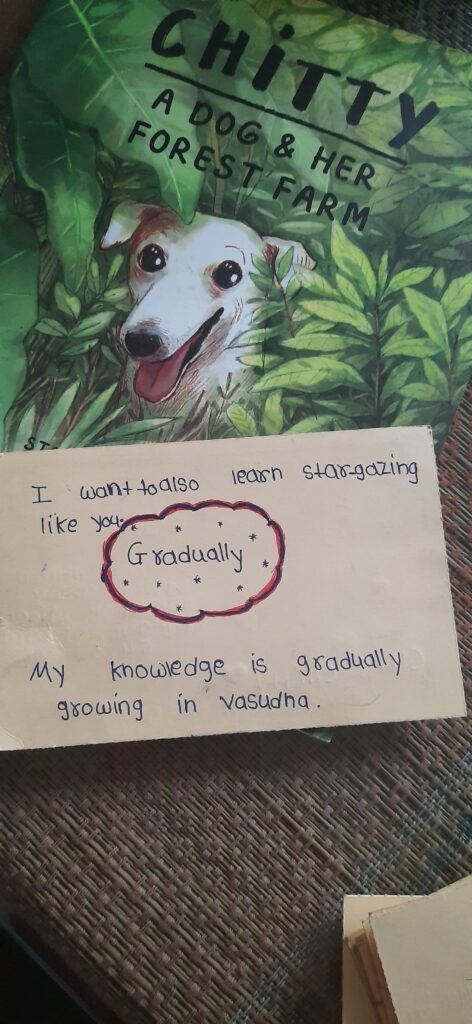 CHITTY
A DOG & HER
FOREST FARM
I want to also learn star-gazing
like you.
Gradually
My knowledge is gradually
growing in vasudha.